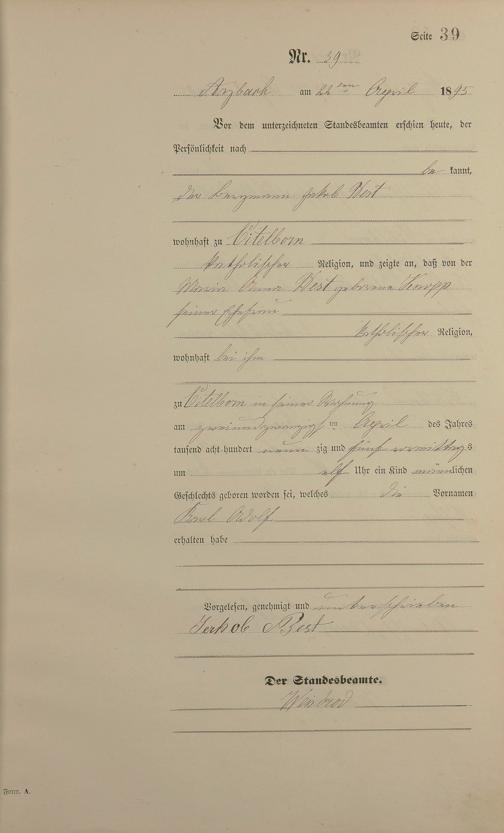 Seite 39
Nr. 39
Arzbach am 22ten April 1895
Vor dem unterzeichneten Standesbeamten erschien heute, der
Persönlichkeit nach
be kannt,
der Bergmann Jakob Best
wohnhaft zu Eitelborn
katholischer Religion, und zeigte an, daß von der
Maria Anna Best geborene Knopp
seiner Ehefrau
katholischer Religion,
wohnhaft bei ihm
zu Eitelborn in seiner Wohnung
am zweiundzwanzigsten April des Jahres
tausend acht hundert neun zig und fünf vormittags
um elf Uhr ein Kind männlichen
Geschlechts geboren worden sei, welches die Vornamen
Karl Adolf
erhalten habe
Vorgelesen, genehmigt und unterschrieben
Jakob Best
Der Standesbeamte.
Form. A.